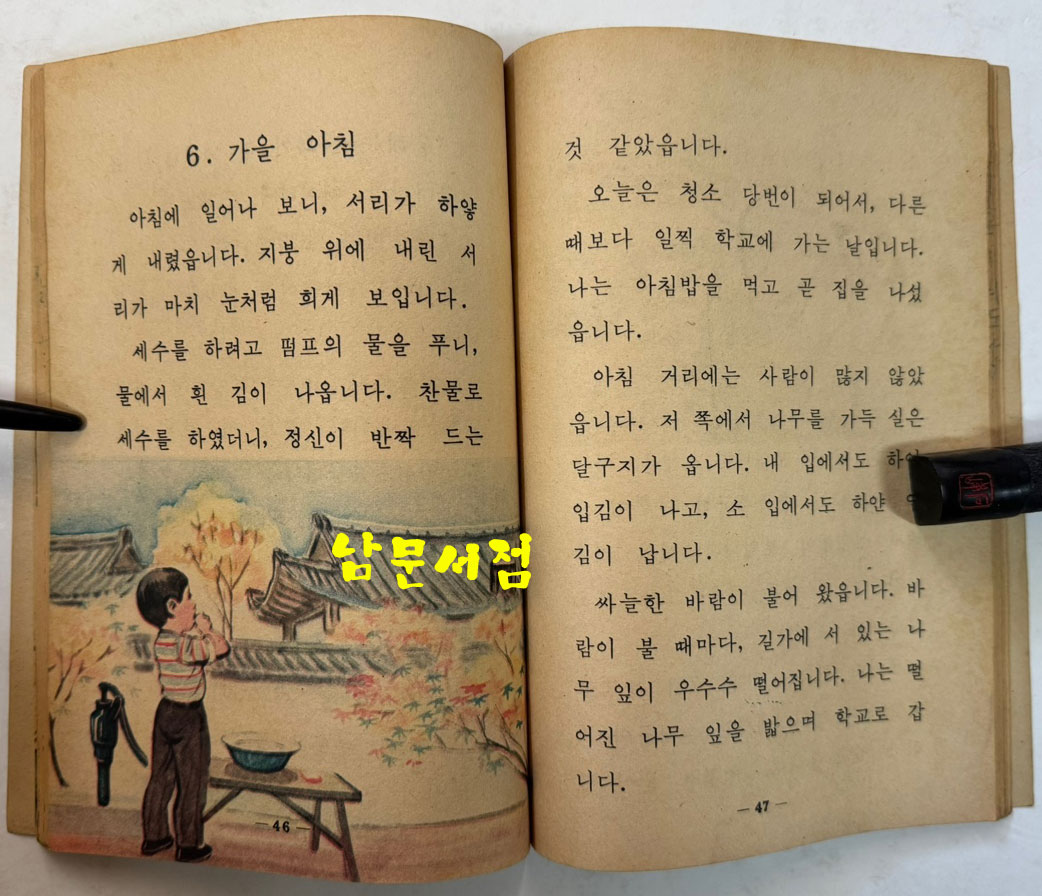 6. 가을 아침
아침에 일어나 보니, 서리가 하얗
게 내렸읍니다. 지붕 위에 내린 서
리가 마치 눈처럼 희게 보입니다.
세수를 하려고 펌프의 물을 푸니,
물에서 흰 김이 나옵니다. 찬물로
세수를 하였더니, 정신이 반짝 드는
남문서점
— 46 —
것 같았읍니다.
오늘은 청소 당번이 되어서, 다른
때보다 일찍 학교에 가는 날입니다.
나는 아침밥을 먹고 곧 집을 나섰
읍니다.
아침 거리에는 사람이 많지 않았
읍니다. 저 쪽에서 나무를 가득 실은
달구지가 옵니다. 내 입에서도
입김이 나고, 소 입에서도 하얀
김이 납니다.
싸늘한 바람이 불어 왔읍니다. 바
람이 불 때마다, 길가에 서 있는 나
무 잎이 우수수 떨어집니다. 나는 떨
어진 나무 잎을 밟으며 학교로 갑
니다.
— 47 —